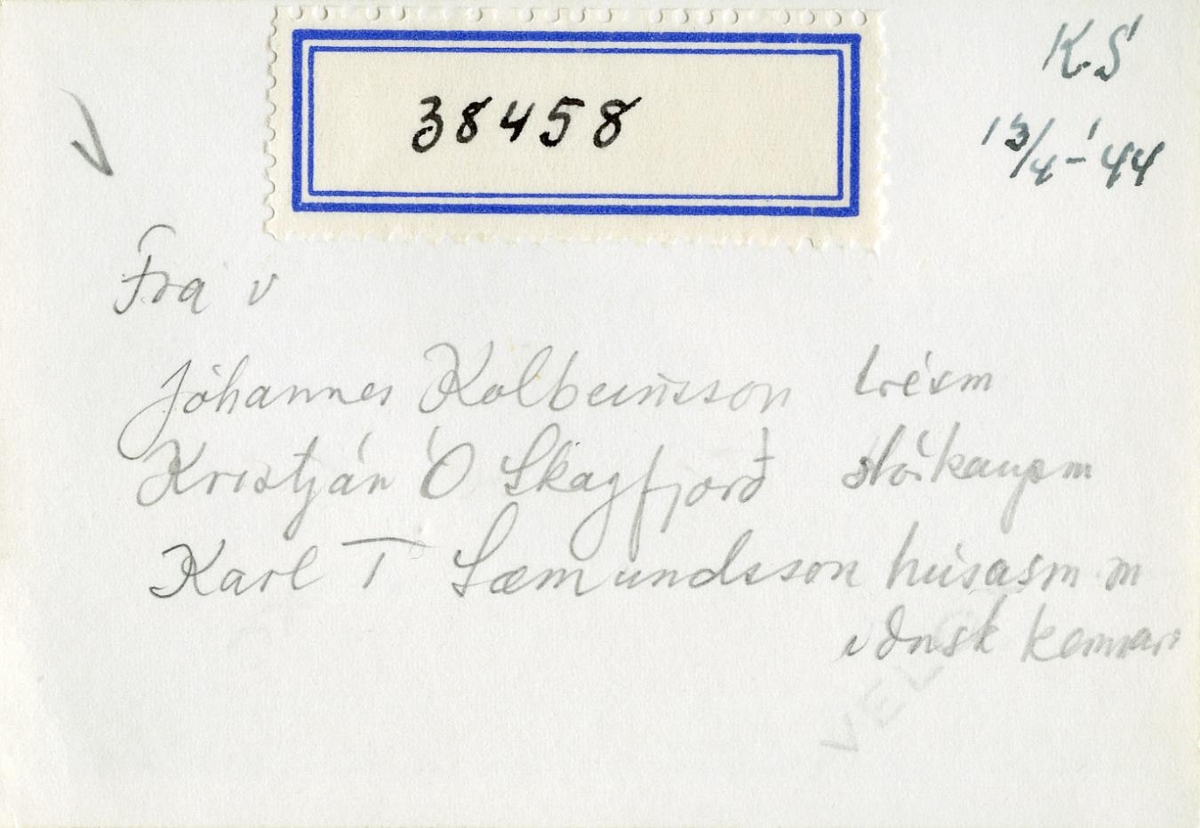 38458
K.S
13/4-'44
Fra v
Jóhannes Kolbeinsson trésm
Kristján Ó Skagfjorð stórkaupm
Karl T Sæmundsson húsasm.m
iðnsk kennari
VELOX